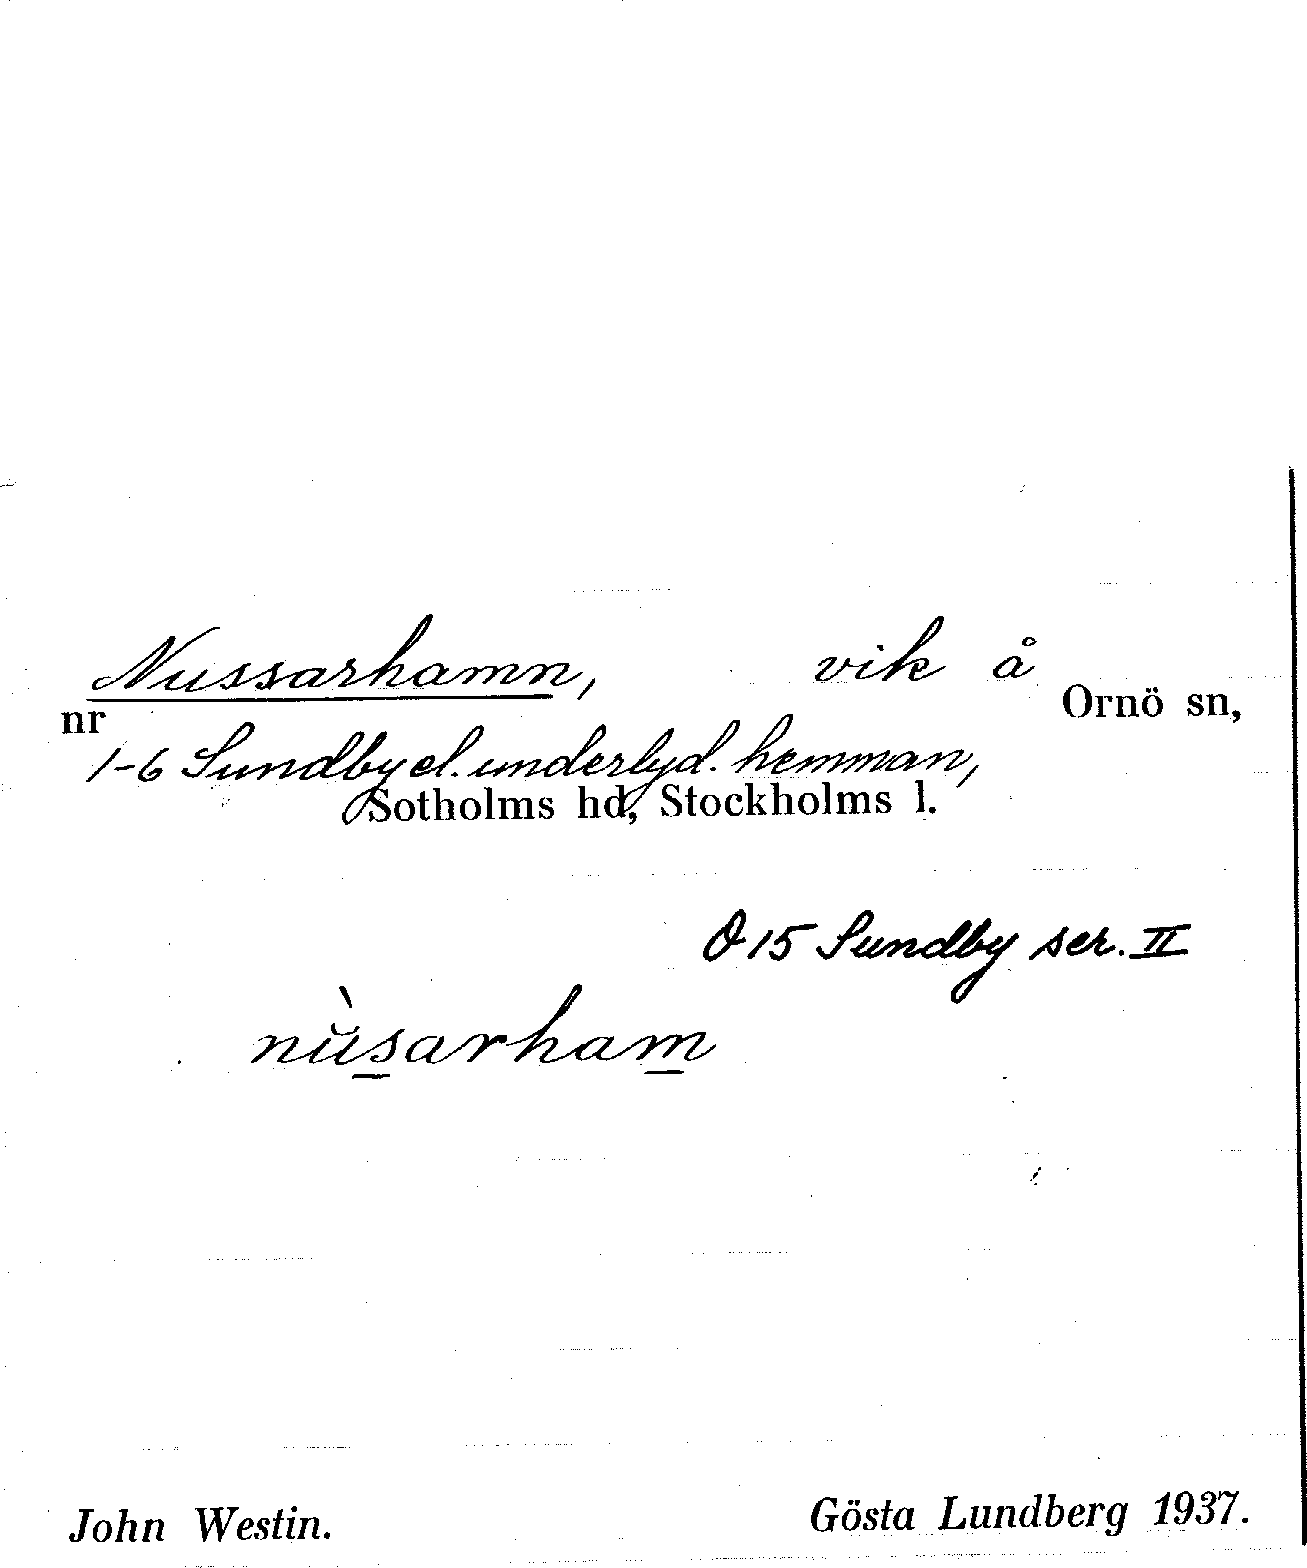 Nussarhamn, vik å
nr Ornö sn,
1-6 Sundby el. underlyd. hemman,
Sotholms hd, Stockholms l.
O 15 Sundby ser. II
nùsarham
John Westin. Gösta Lundberg 1937.